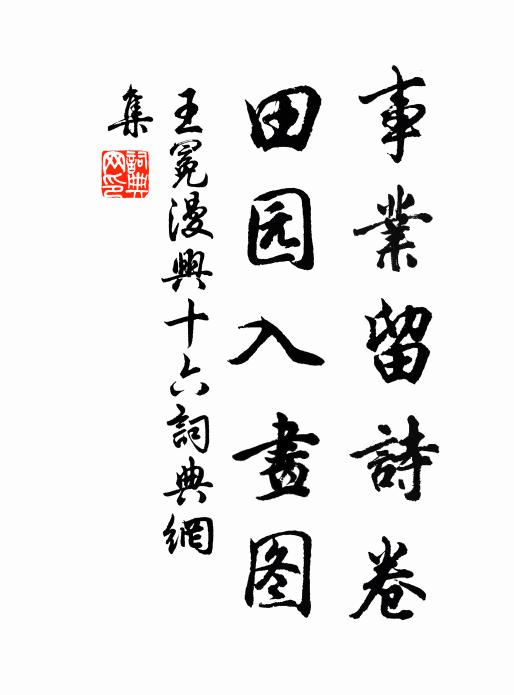 事業留詩卷
田园入畫图
王冕漫興十六詞典網
集
詞典网印